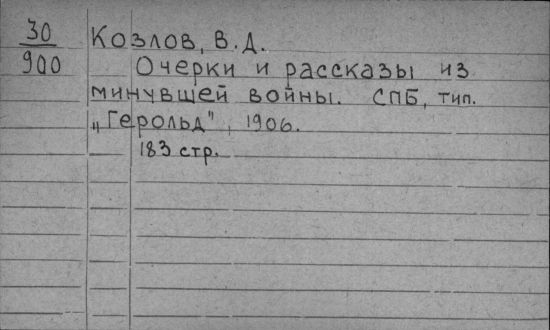 30
900
Козлов, В.Д.
Очерки и рассказы из
минувшей войны. СПБ, тип.
„Герольд", 1906.
183 стр.